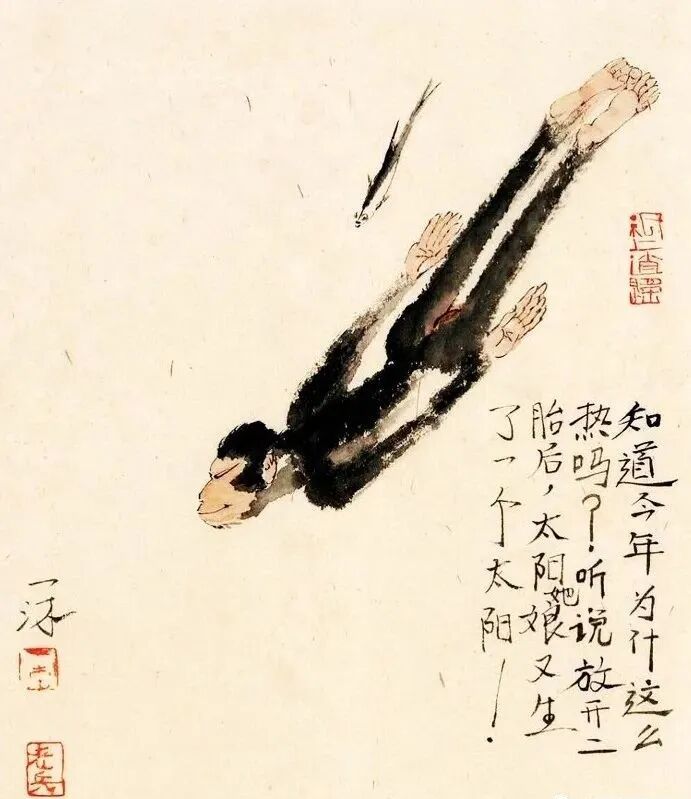 知道今年为什这么
热吗？！听说放开二
胎后，太阳她娘又生
了一个太阳！
一沐